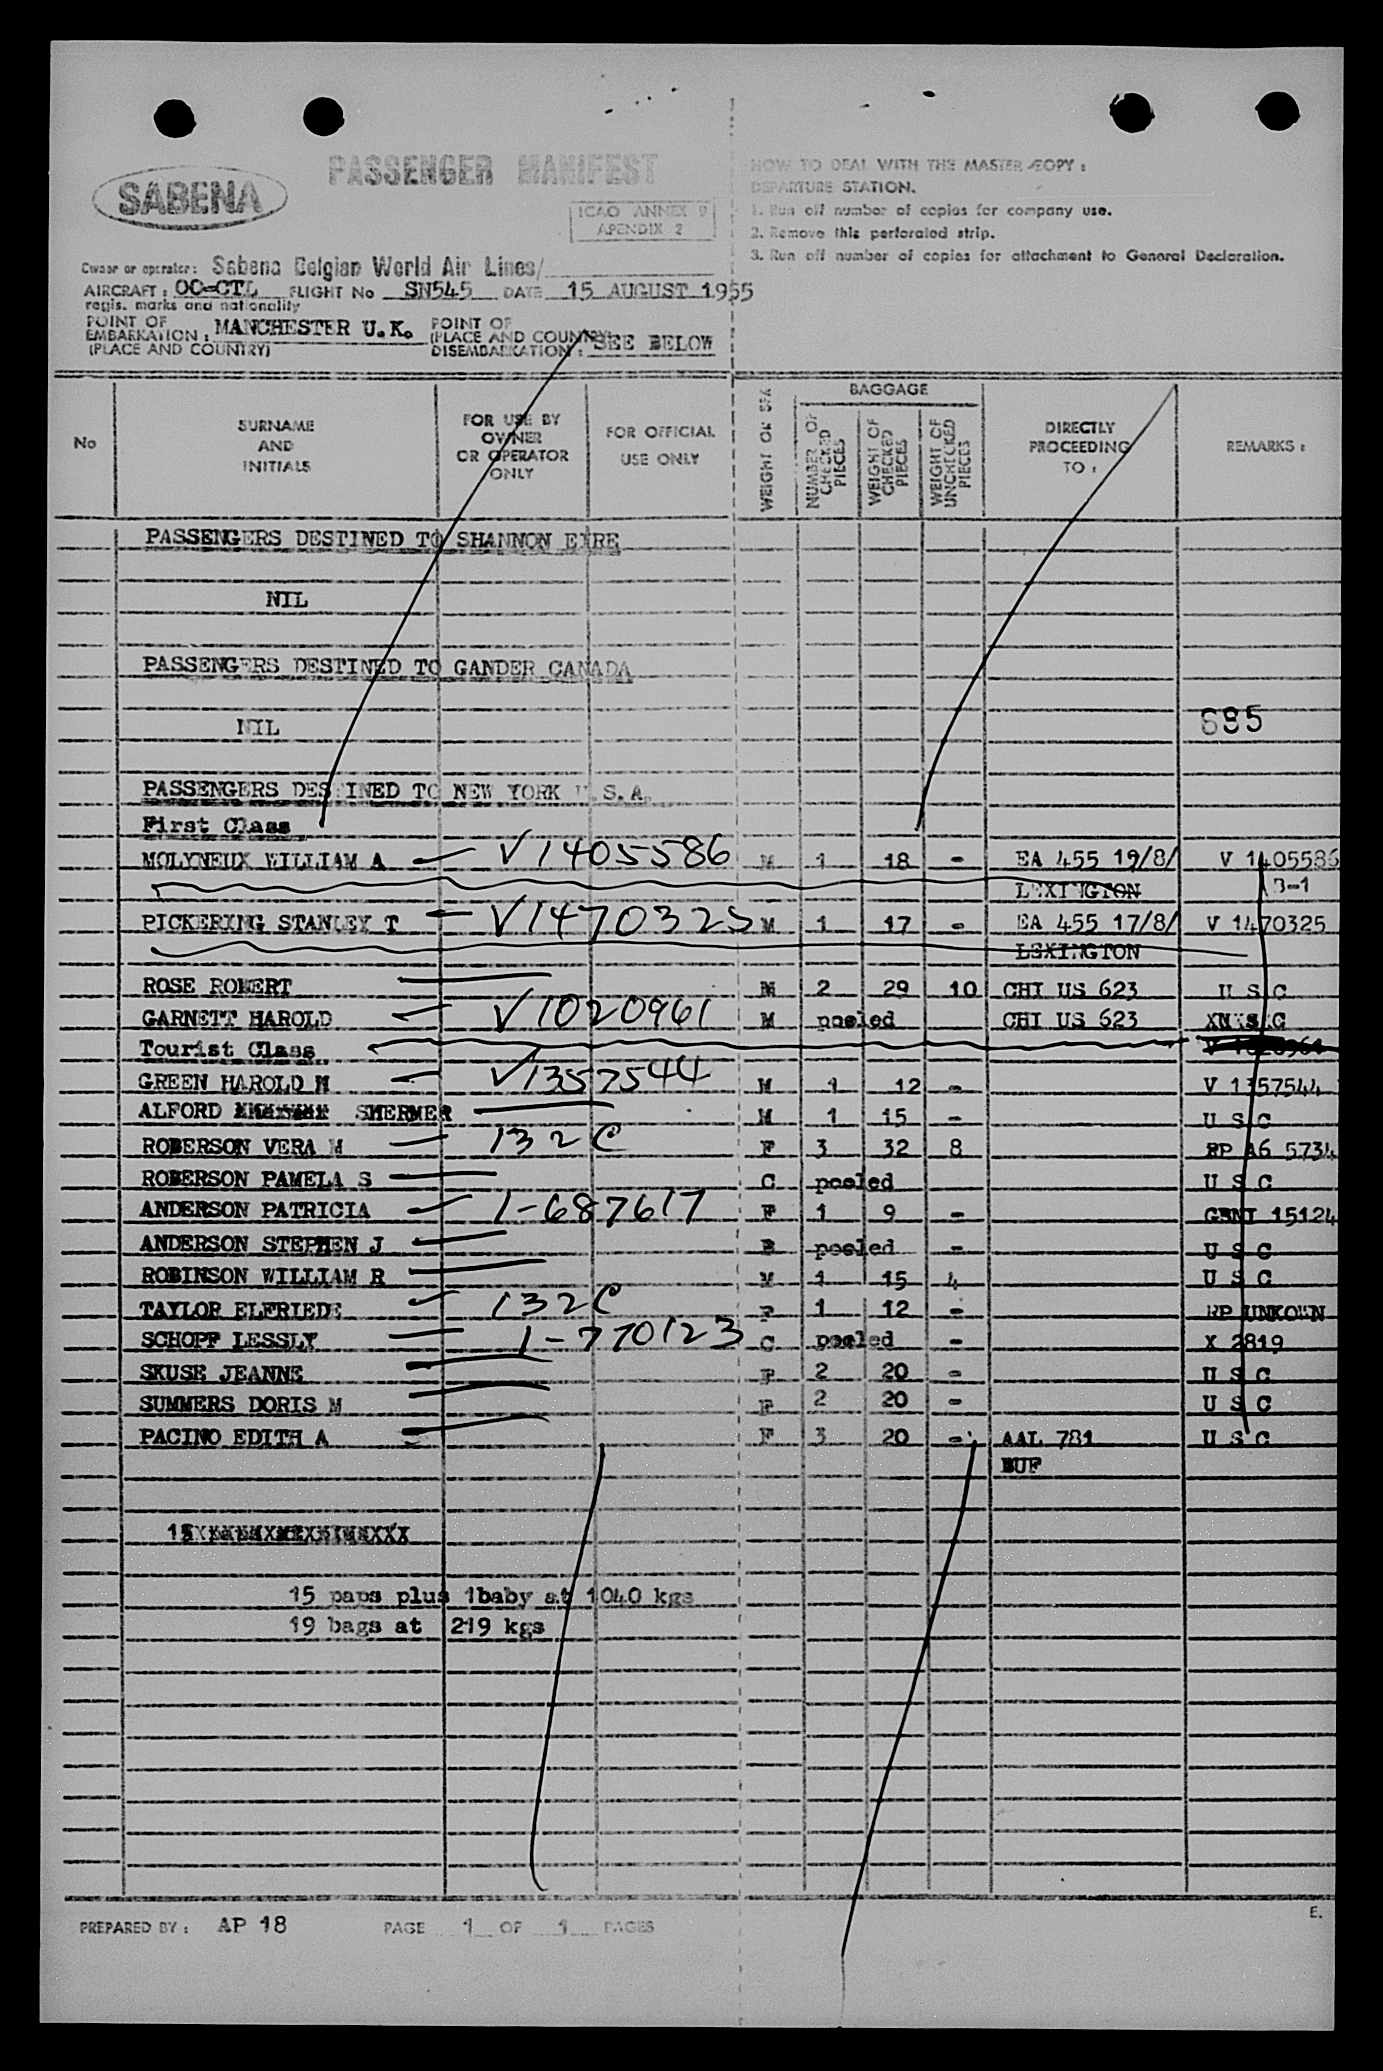 PASSENGER MANIFEST
SABENA
ICAO ANNEX 9
APENDIX 2
HOW TO DEAL WITH THE MASTER COPY :
DEPARTURE STATION.
1. Run off number of copies for company use.
2. Remove this perforated strip.
3. Run off number of copies for attachment to General Declaration.
Owner or operator: Sabena Belgian World Air Lines/
AIRCRAFT : OO-CTL FLIGHT No SN545 DATE 15 AUGUST 1955
regis. marks and nationality
POINT OF EMBARKATION : MANCHESTER U.K. POINT OF DISEMBARKATION : SEE BELOW
(PLACE AND COUNTRY) (PLACE AND COUNTRY)
No SURNAME AND INITIALS FOR USE BY OWNER OR OPERATOR ONLY FOR OFFICIAL USE ONLY WEIGHT OR BAGGAGE NUMBER OF CHECKED PIECES WEIGHT OF CHECKED PIECES WEIGHT OF UNCHECKED PIECES DIRECTLY PROCEEDING TO : REMARKS :
PASSENGERS DESTINED TO SHANNON EIRE
NIL
PASSENGERS DESTINED TO GANDER CANADA
NIL 695
PASSENGERS DESTINED TO NEW YORK U.S.A.
First Class
MOLYNEUX WILLIAM A V1405586 M 1 18 - EA 455 19/8/ V 1405586
LEXINGTON B-1
PICKERING STANLEY T V1470325 M 1 17 - EA 455 17/8/ V 1470325
LEXINGTON
ROSE ROBERT M 2 29 10 CHI US 623 U S C
GARNETT HAROLD V1020961 M pooled CHI US 623
Tourist Class V 1020961
GREEN HAROLD M V1357544 M 1 12 - V 1357544
ALFORD SHERMER M 1 15 - U S C
ROBERSON VERA M 132C F 3 32 8 RP A6 5734
ROBERSON PAMELA S C pooled U S C
ANDERSON PATRICIA 1-687617 F 1 9 - GBNI 15124
ANDERSON STEPHEN J B pooled - U S C
ROBINSON WILLIAM R M 1 15 4 U S C
TAYLOR ELFRIEDE 132C F 1 12 - RP UNKOWN
SCHOPF LESSLY 1-770123 C pooled - X 2819
SKUSE JEANNE F 2 20 - U S C
SUMMERS DORIS M F 2 20 - U S C
PACINO EDITH A F 3 20 - AAL 781 U S C
BUF
15 paps plus 1baby at 1040 kgs
19 bags at 219 kgs
PREPARED BY : AP 18 PAGE 1 OF 1 PAGES
E.